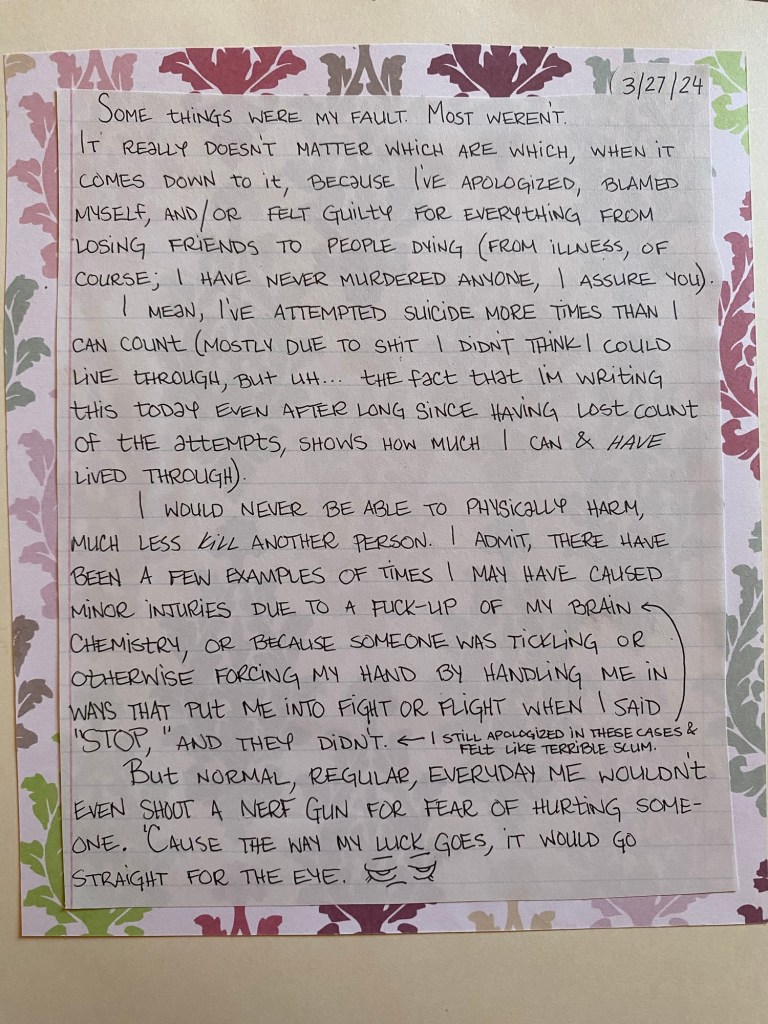 3/27/24
SOME THINGS WERE MY FAULT. MOST WEREN'T.
IT REALLY DOESN'T MATTER WHICH ARE WHICH, WHEN IT
COMES DOWN TO IT, BECAUSE I'VE APOLOGIZED, BLAMED
MYSELF, AND/OR FELT GUILTY FOR EVERYTHING FROM
LOSING FRIENDS TO PEOPLE DYING (FROM ILLNESS, OF
COURSE; I HAVE NEVER MURDERED ANYONE, I ASSURE YOU).
I MEAN, I'VE ATTEMPTED SUICIDE MORE TIMES THAN I
CAN COUNT (MOSTLY DUE TO SHIT I DIDN'T THINK I COULD
LIVE THROUGH, BUT UH... THE FACT THAT I'M WRITING
THIS TODAY EVEN AFTER LONG SINCE HAVING LOST COUNT
OF THE ATTEMPTS, SHOWS HOW MUCH I CAN & HAVE
LIVED THROUGH).
I WOULD NEVER BE ABLE TO PHYSICALLY HARM,
MUCH LESS KILL ANOTHER PERSON. I ADMIT, THERE HAVE
BEEN A FEW EXAMPLES OF TIMES I MAY HAVE CAUSED
MINOR INJURIES DUE TO A FUCK-UP OF MY BRAIN
CHEMISTRY, OR BECAUSE SOMEONE WAS TICKLING OR
OTHERWISE FORCING MY HAND BY HANDLING ME IN
WAYS THAT PUT ME INTO FIGHT OR FLIGHT WHEN I SAID
"STOP," AND THEY DIDN'T. ← I STILL APOLOGIZED IN THESE CASES &
FELT LIKE TERRIBLE SCUM.
BUT NORMAL, REGULAR, EVERYDAY ME WOULDN'T
EVEN SHOOT A NERF GUN FOR FEAR OF HURTING SOME-
ONE. 'CAUSE THE WAY MY LUCK GOES, IT WOULD GO
STRAIGHT FOR THE EYE.